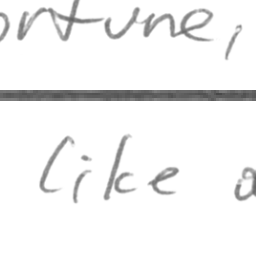 ortune,
like a